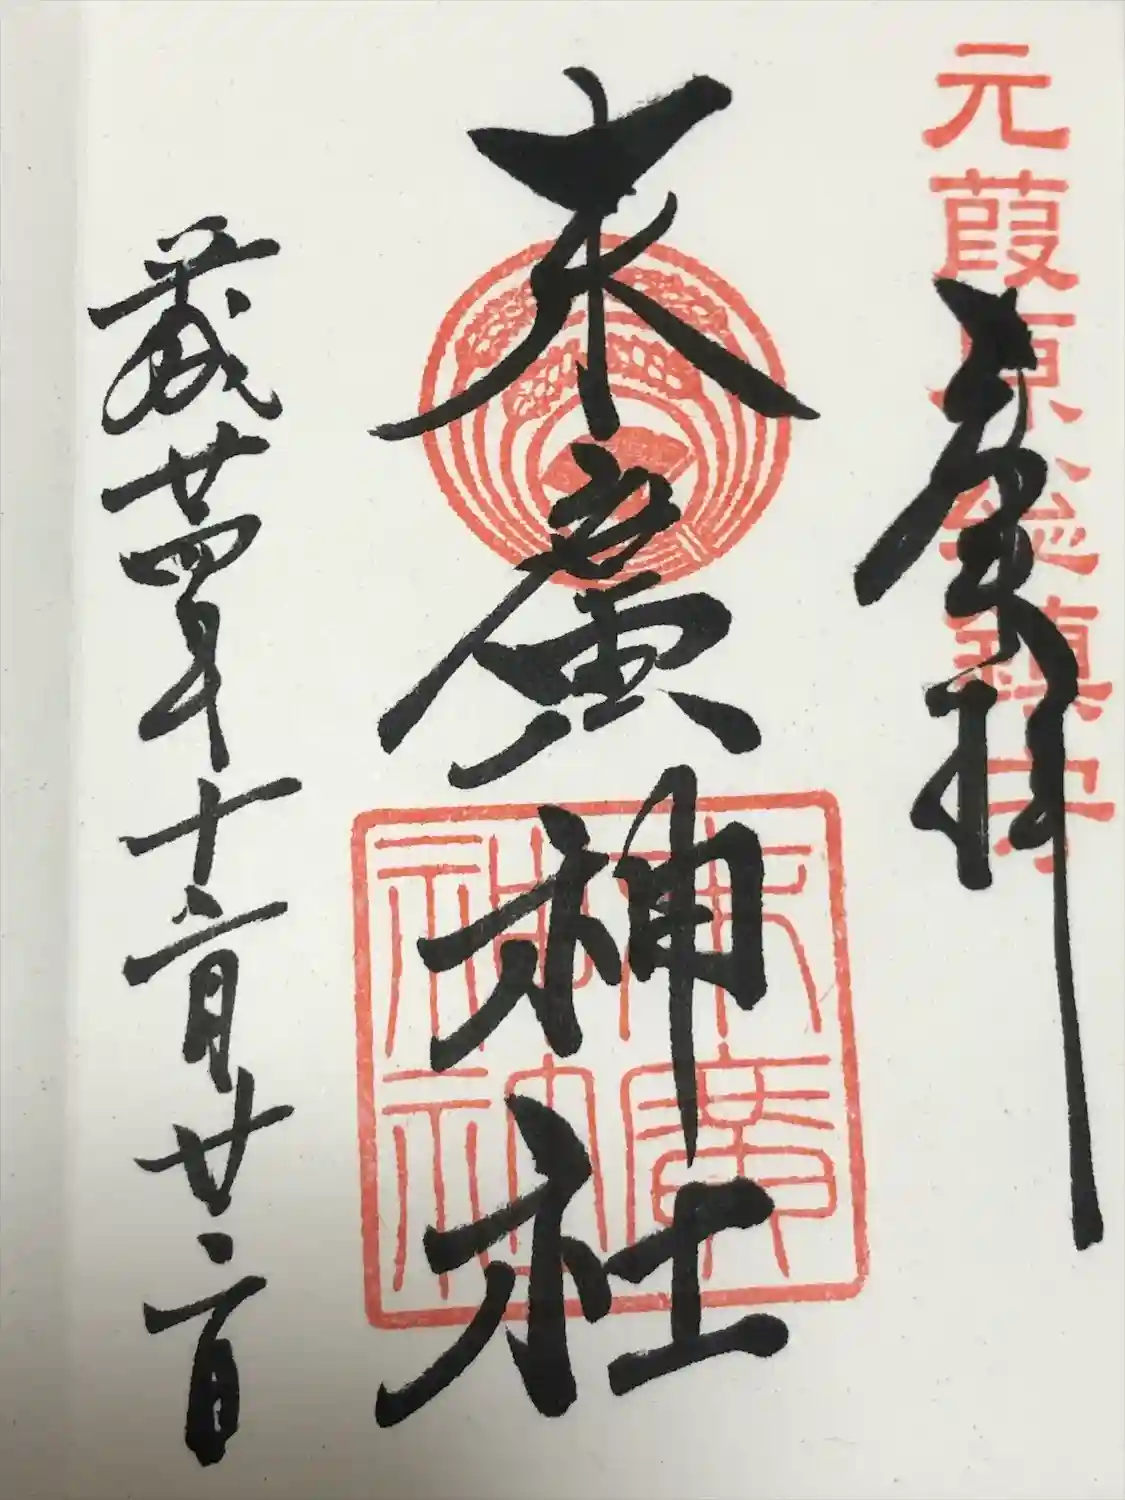 元葭原総鎮守
奉拝
末廣神社
末廣神社
平成廿四年十二月廿二日